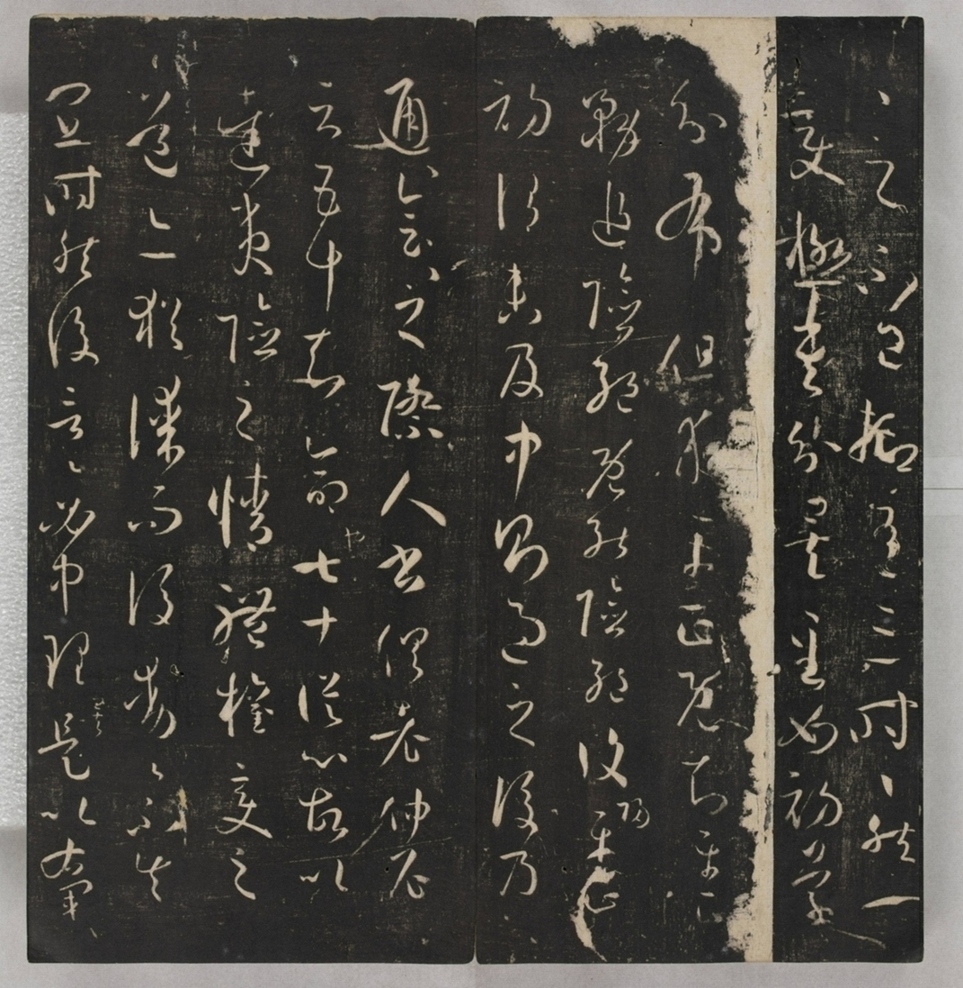 之不已抑有三時〻然一
變極其分矣至如初學
分布但求平正既知平正
務追險絕既能險絕復歸平正
初謂未及中則過之後乃
通〻會〻之際人書俱老仲尼
云五十知命也七十從心故以
達夷險之情體權變之
道亦猶謀而後動〻不失
宜時然後言〻必中理矣是以右軍